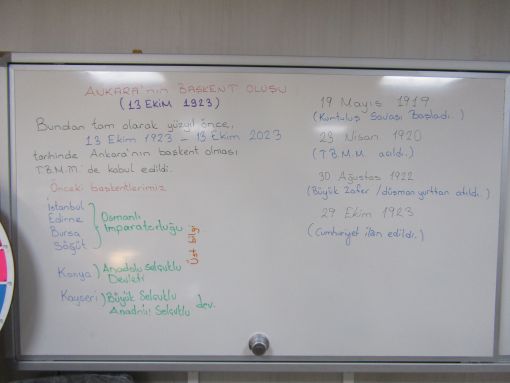 ANKARA'nın BAŞKENT OLUŞU
(13 EKİM 1923)
Bundan tam olarak yüzyıl önce,
13 Ekim 1923 - 13 Ekim 2023
tarihinde Ankara'nın başkent olması
T.B.M.M.'de kabul edildi.
Önceki başkentlerimiz
İstanbul
Edirne
Bursa
Söğüt
Osmanlı
İmparatorluğu
Konya
Anadolu Selçuklu
Devleti
Kayseri
Büyük Selçuklu
Selçuklu
dev.
Üst bilgi
19 Mayıs 1919
(Kurtuluş Savaşı Başladı.)
23 Nisan 1920
(T.B.M.M açıldı.)
30 Ağustos 1922
(Büyük Zafer / düşman yurttan atıldı)
29 Ekim 1923
(Cumhuriyet ilan edildi.)